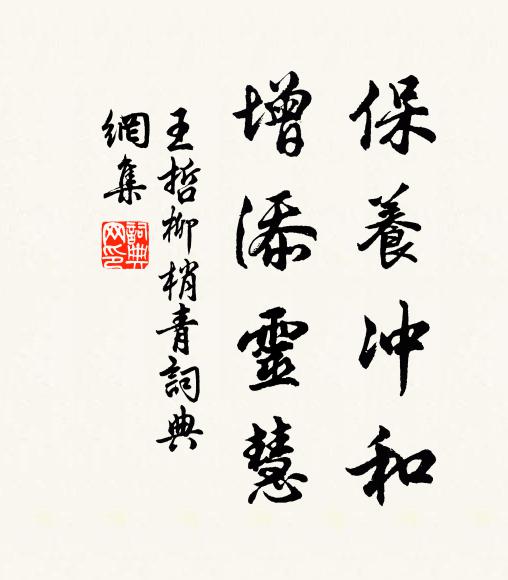 保養冲和
增添靈慧
王哲柳梢青詞典
網集
詞典
网印